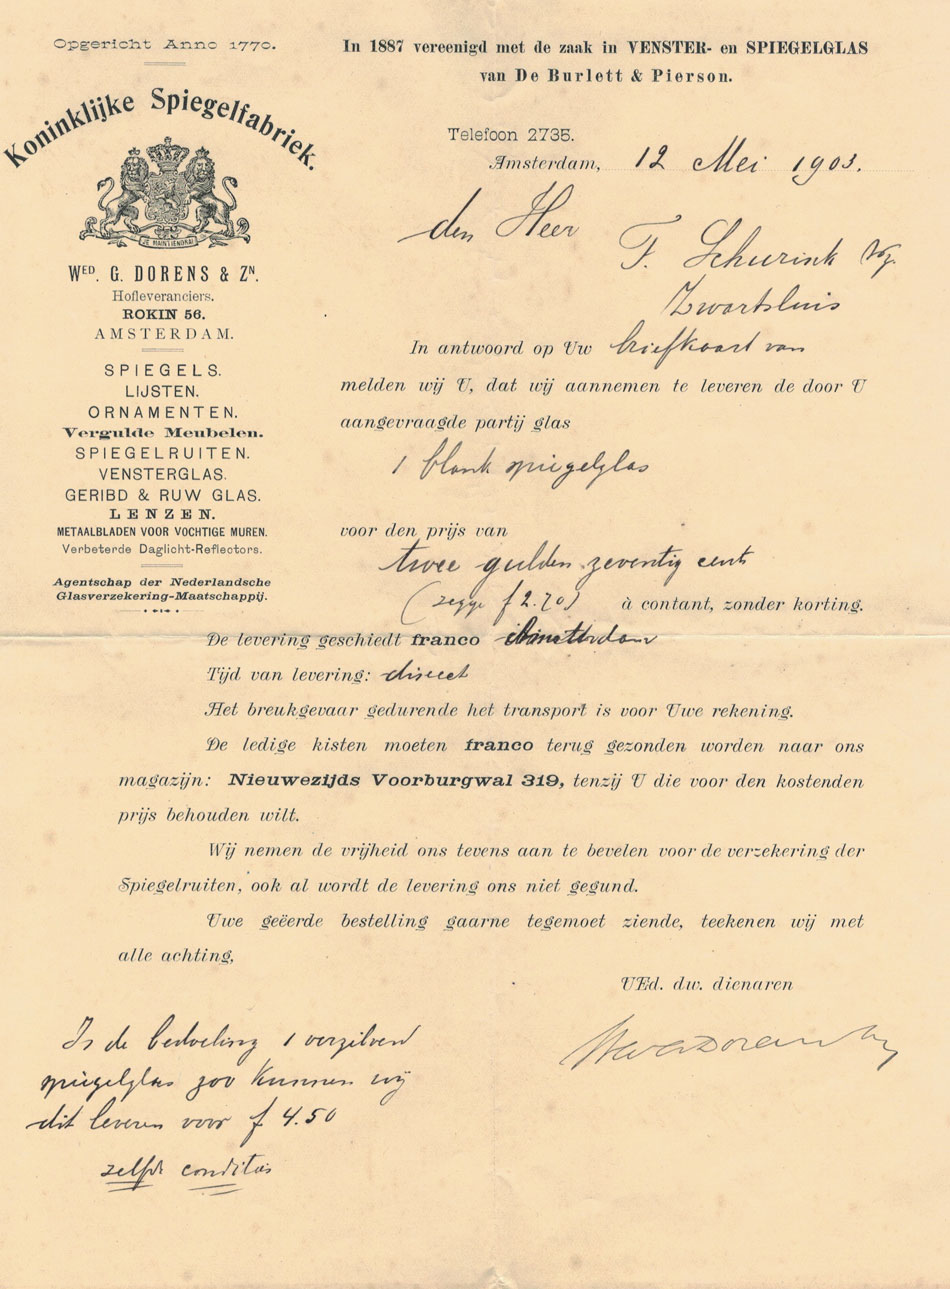 Opgericht Anno 1770.
Koninklijke Spiegelfabriek.
JE MAINTIENDRAI
WED. G. DORENS & ZN.
Hofleveranciers.
ROKIN 56.
AMSTERDAM.
SPIEGELS.
LIJSTEN.
ORNAMENTEN.
Vergulde Meubelen.
SPIEGELRUITEN.
VENSTERGLAS.
GERIBD & RUW GLAS.
LENZEN.
METAALBLADEN VOOR VOCHTIGE MUREN.
Verbeterde Daglicht-Reflectors.
Agentschap der Nederlandsche
Glasverzekering-Maatschappij.
In 1887 vereenigd met de zaak in VENSTER- en SPIEGELGLAS
van De Burlett & Pierson.
Telefoon 2735.
Amsterdam, 12 Mei 1903.
den Heer
F. Schurink
Zwartsluis
In antwoord op Uw briefkaart van
melden wij U, dat wij aannemen te leveren de door U
aangevraagde partij glas
1 blank spiegelglas
voor den prijs van
twee gulden zeventig cent
(zegge f 2.70) à contant, zonder korting.
De levering geschiedt franco Amsterdam
Tijd van levering: direct
Het breukgevaar gedurende het transport is voor Uwe rekening.
De ledige kisten moeten franco terug gezonden worden naar ons
magazijn: Nieuwezijds Voorburgwal 319, tenzij U die voor den kostenden
prijs behouden wilt.
Wij nemen de vrijheid ons tevens aan te bevelen voor de verzekering der
Spiegelruiten, ook al wordt de levering ons niet gegund.
Uwe geëerde bestelling gaarne tegemoet ziende, teekenen wij met
alle achting,
UEd. dw. dienaren
Is de bedoeling 1 verzilverd
spiegelglas zou kunnen wij
dit leveren voor f 4.50
zelfde condities